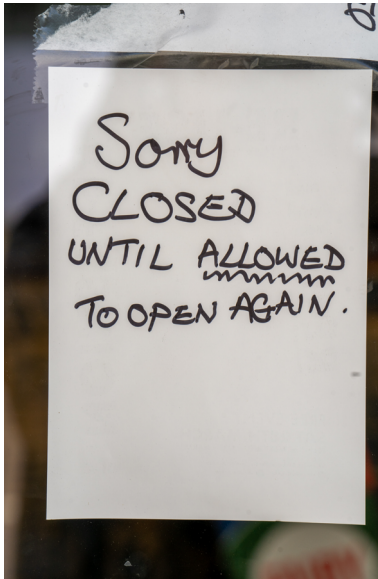 Sorry
CLOSED
UNTIL ALLOWED
TO OPEN AGAIN.